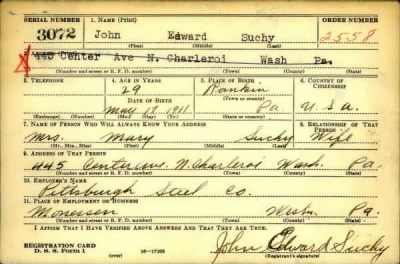 SERIAL NUMBER 1. NAME (Print) ORDER NUMBER
3072 John Edward Suchy 2558
(First) (Middle) (Last)
2. ADDRESS (Print)
445 Center Ave N. Charleroi Wash Pa.
(Number and street or R. F. D. number) (Town) (County) (State)
3. TELEPHONE 4. AGE IN YEARS 5. PLACE OF BIRTH 6. COUNTRY OF CITIZENSHIP
29 Rankin
DATE OF BIRTH (Town or county)
May 17 1911 Pa U.S.a.
(Exchange) (Number) (Mo.) (Day) (Yr.) (State or country)
7. NAME OF PERSON WHO WILL ALWAYS KNOW YOUR ADDRESS 8. RELATIONSHIP OF THAT PERSON
Mrs. Mary Suchy Wife
(Mr., Mrs., Miss) (First) (Middle) (Last)
9. ADDRESS OF THAT PERSON
445 Center ave. N. Charleroi Wash. Pa.
(Number and street or R. F. D. number) (Town) (County) (State)
10. EMPLOYER'S NAME
Pittsburgh Steel Co.
11. PLACE OF EMPLOYMENT OR BUSINESS
Monessen Westm. Pa.
(Number and street or R. F. D. number) (Town) (County) (State)
I AFFIRM THAT I HAVE VERIFIED ABOVE ANSWERS AND THAT THEY ARE TRUE.
REGISTRATION CARD
D. S. S. Form 1 16-17105 John Edward Suchy
(over) (Registrant's signature)